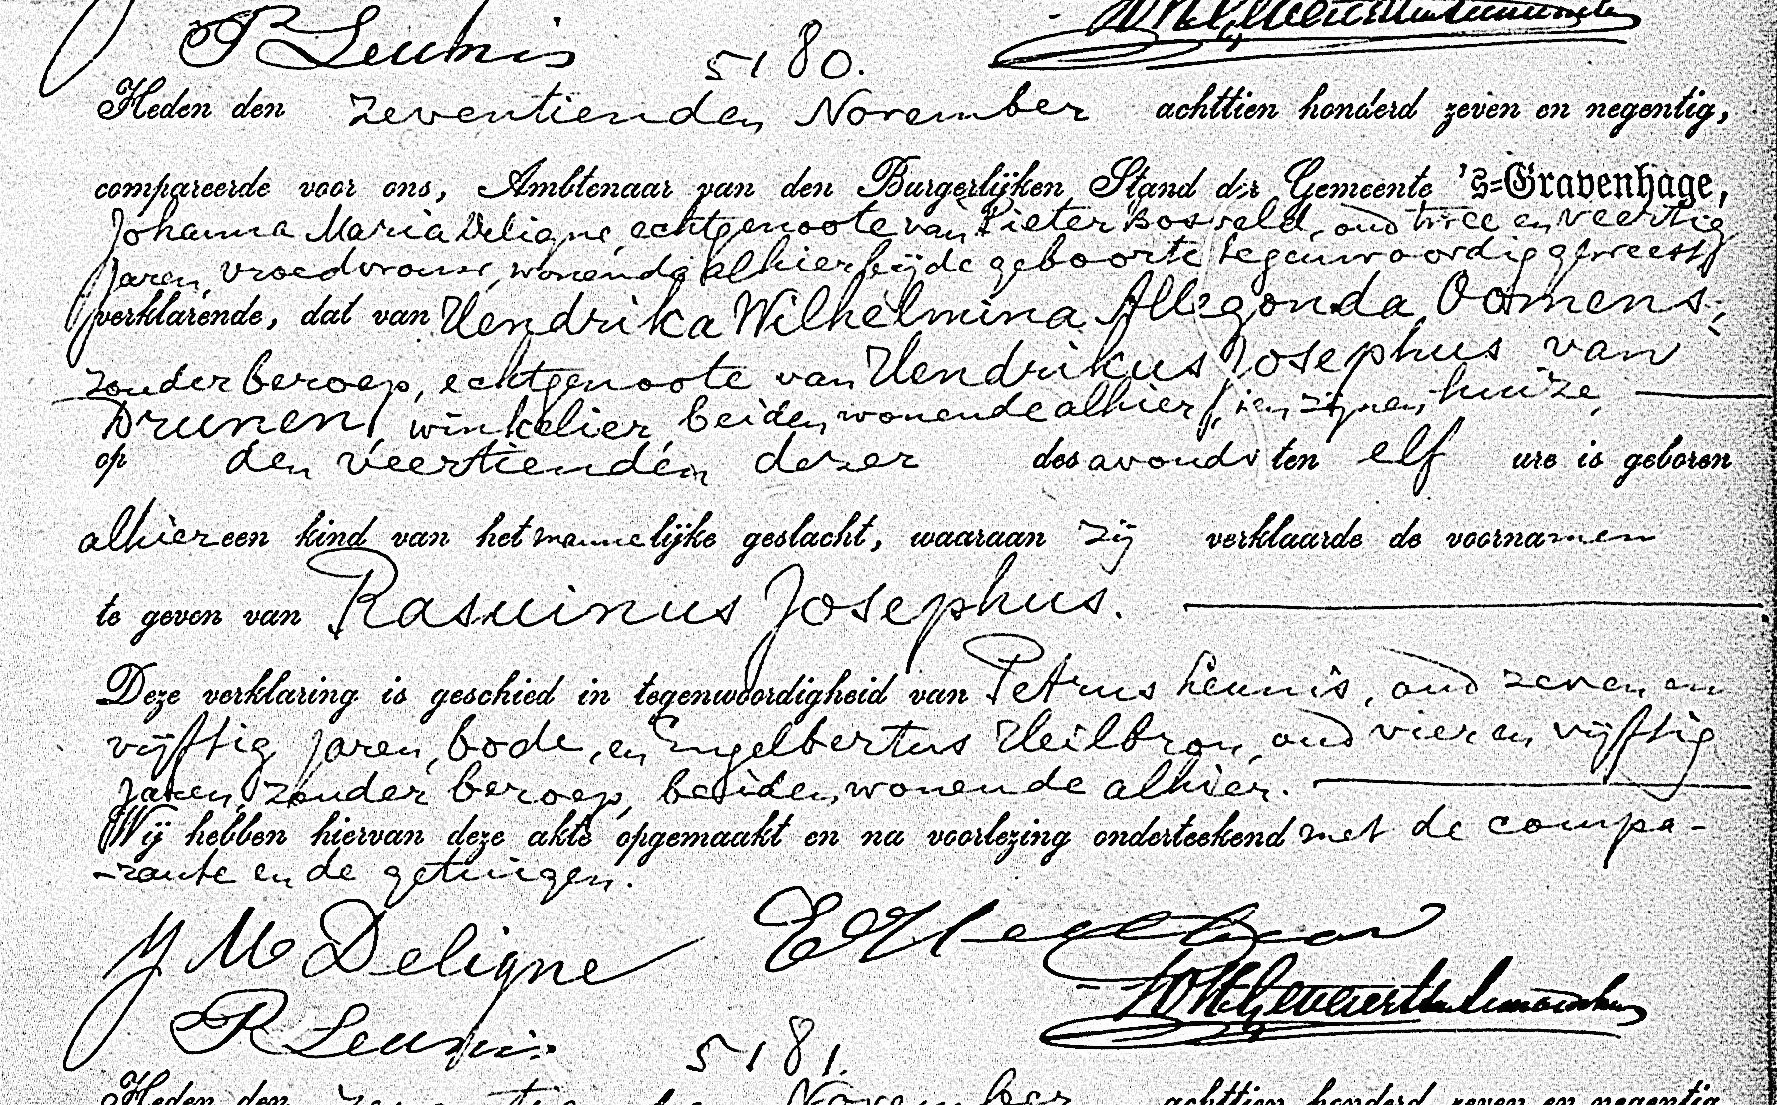 P Leunis 5180.
Heden den zeventienden November achttien honderd zeven en negentig,
compareerde voor ons, Ambtenaar van den Burgerlijken Stand der Gemeente 's-Gravenhage,
Johanna Maria Deligne, echtgenoote van Pieter Bosveld, oud twee en veertig
jaren, vroedvrouw, wonende alhier, bij de geboorte tegenwoordig geweest
verklarende, dat van Hendrika Wilhelmina Allegonda Oomens,
zonder beroep, echtgenoote van Hendrikus Josephus van
Drunen, winkelier, beiden wonende alhier, in zijnen huize,
op den veertienden dezer des avonds ten elf ure is geboren
alhier een kind van het mannelijke geslacht, waaraan zij verklaarde de voornamen
te geven van Rasuinus Josephus.
Deze verklaring is geschied in tegenwoordigheid van Petrus Leunis, oud zeven en
vijftig jaren, bode, en Engelbertus Heilbron, oud vier en vijftig
jaren, zonder beroep, beiden wonende alhier.
Wij hebben hiervan deze akte opgemaakt en na voorlezing onderteekend met de compa-
-rante en de getuigen.
J M Deligne E Heilbron
P Leunis 5181.
Heden den zeventienden November achttien honderd zeven en negentig